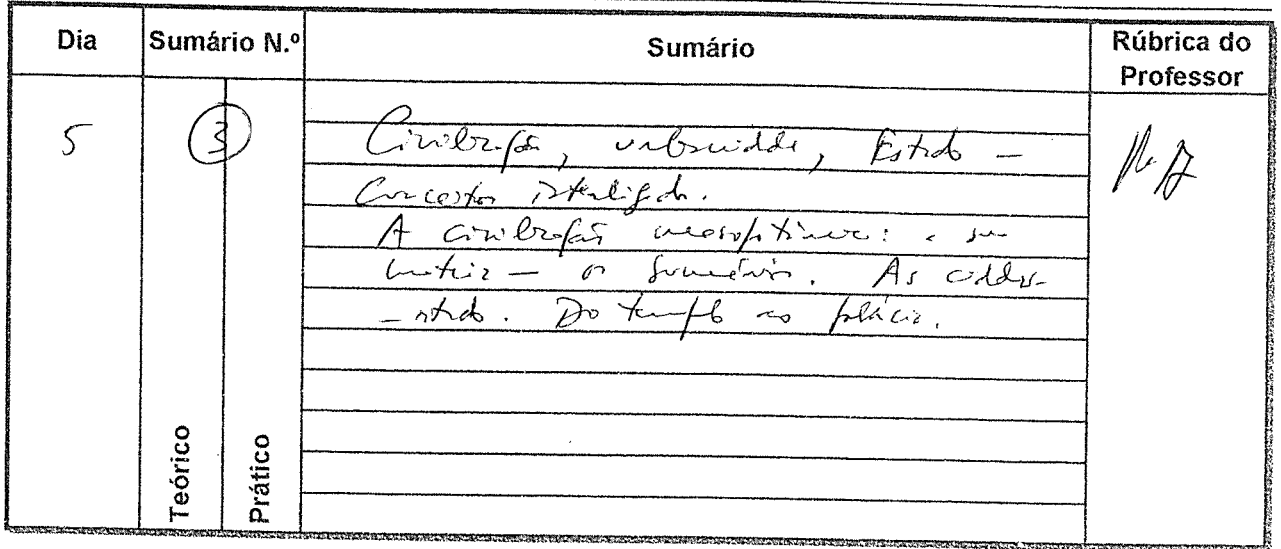 Dia Sumário N.º Sumário Rúbrica do Professor
5 3 Civilização, urbanidade, Estado –
Conceitos interligados.
A civilização mesopotâmica: a sua
matriz – os sumérios. As cidades-
-estado. Do templo ao palácio.
Teórico Prático